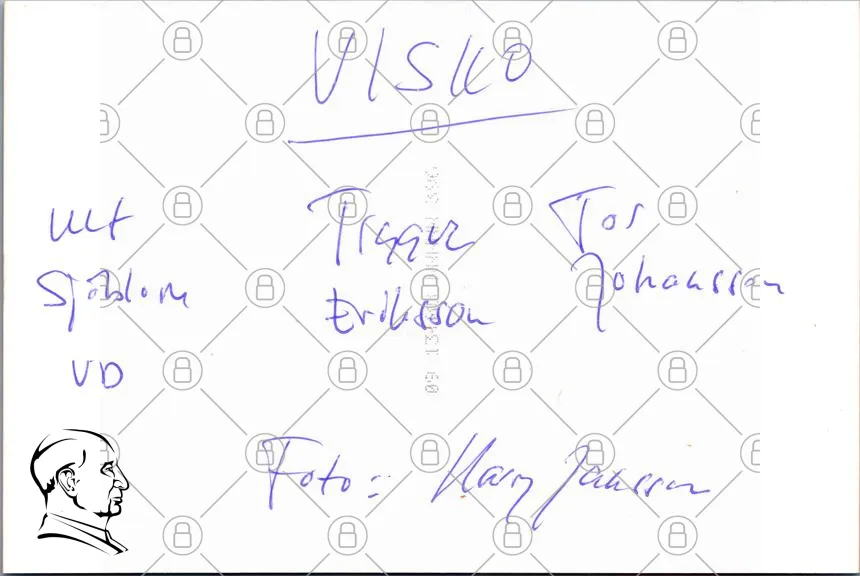 VISKO
Ulf
Sjöblom
VD
Trygve
Eriksson
Tor
Johansson
Foto: Harry Jansson